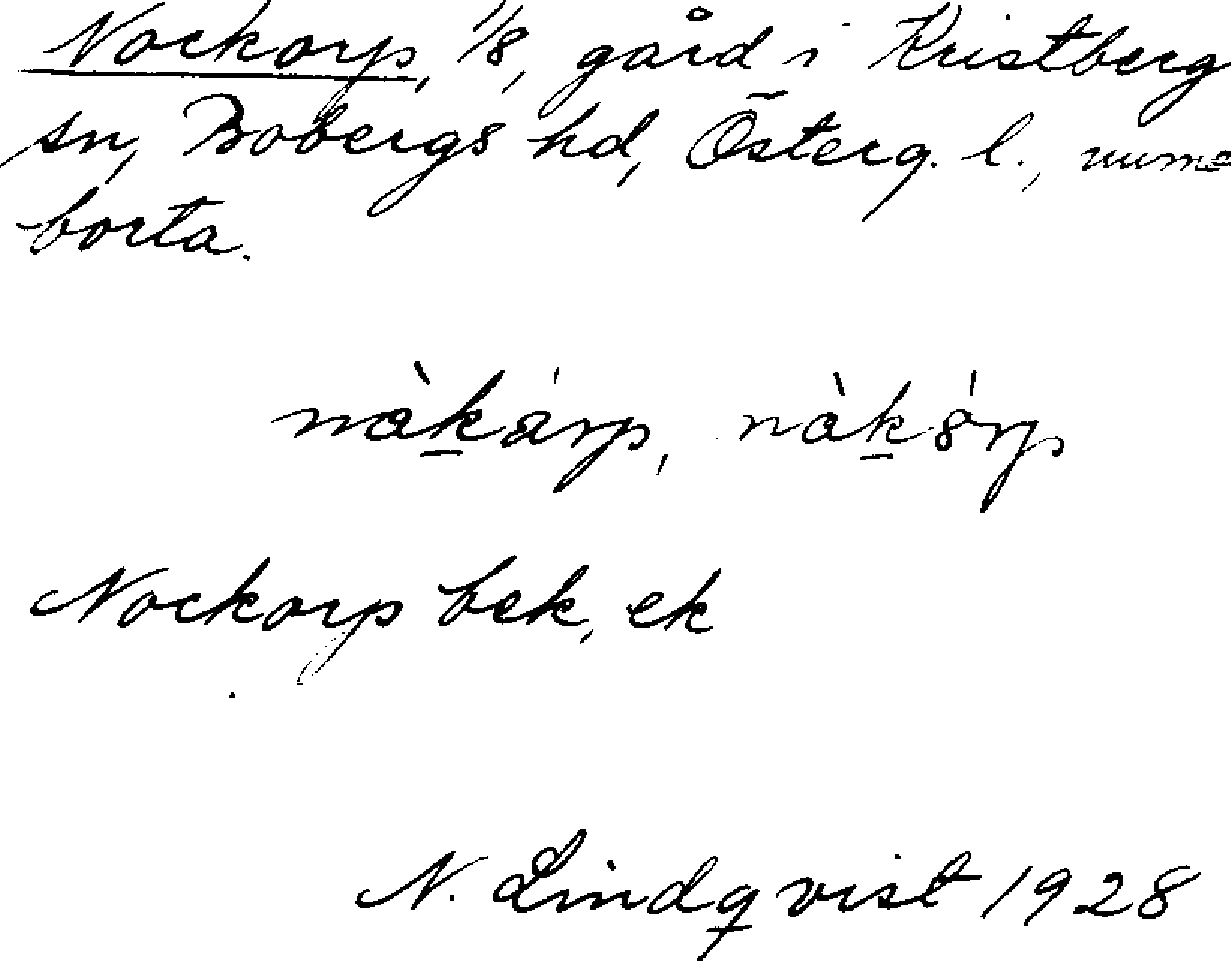 Nockorp, 1/8, gård i Kristberg
sn, Bobergs hd, Österg. l., nume
borta.
nàkárp, nàkórp
Nockorp bek, ek
N. Lindqvist 1928